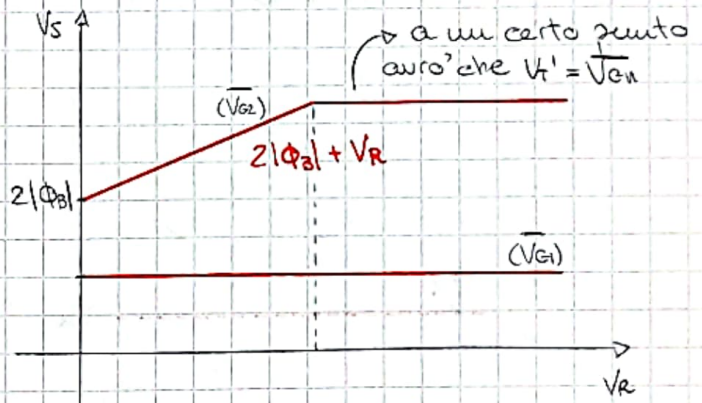 Vs
a un certo punto
avro' che V_T' = V̅_Gn
(V̅_G2)
2|Φ_B| + V_R
2|Φ_B|
(V̅_G1)
V_R